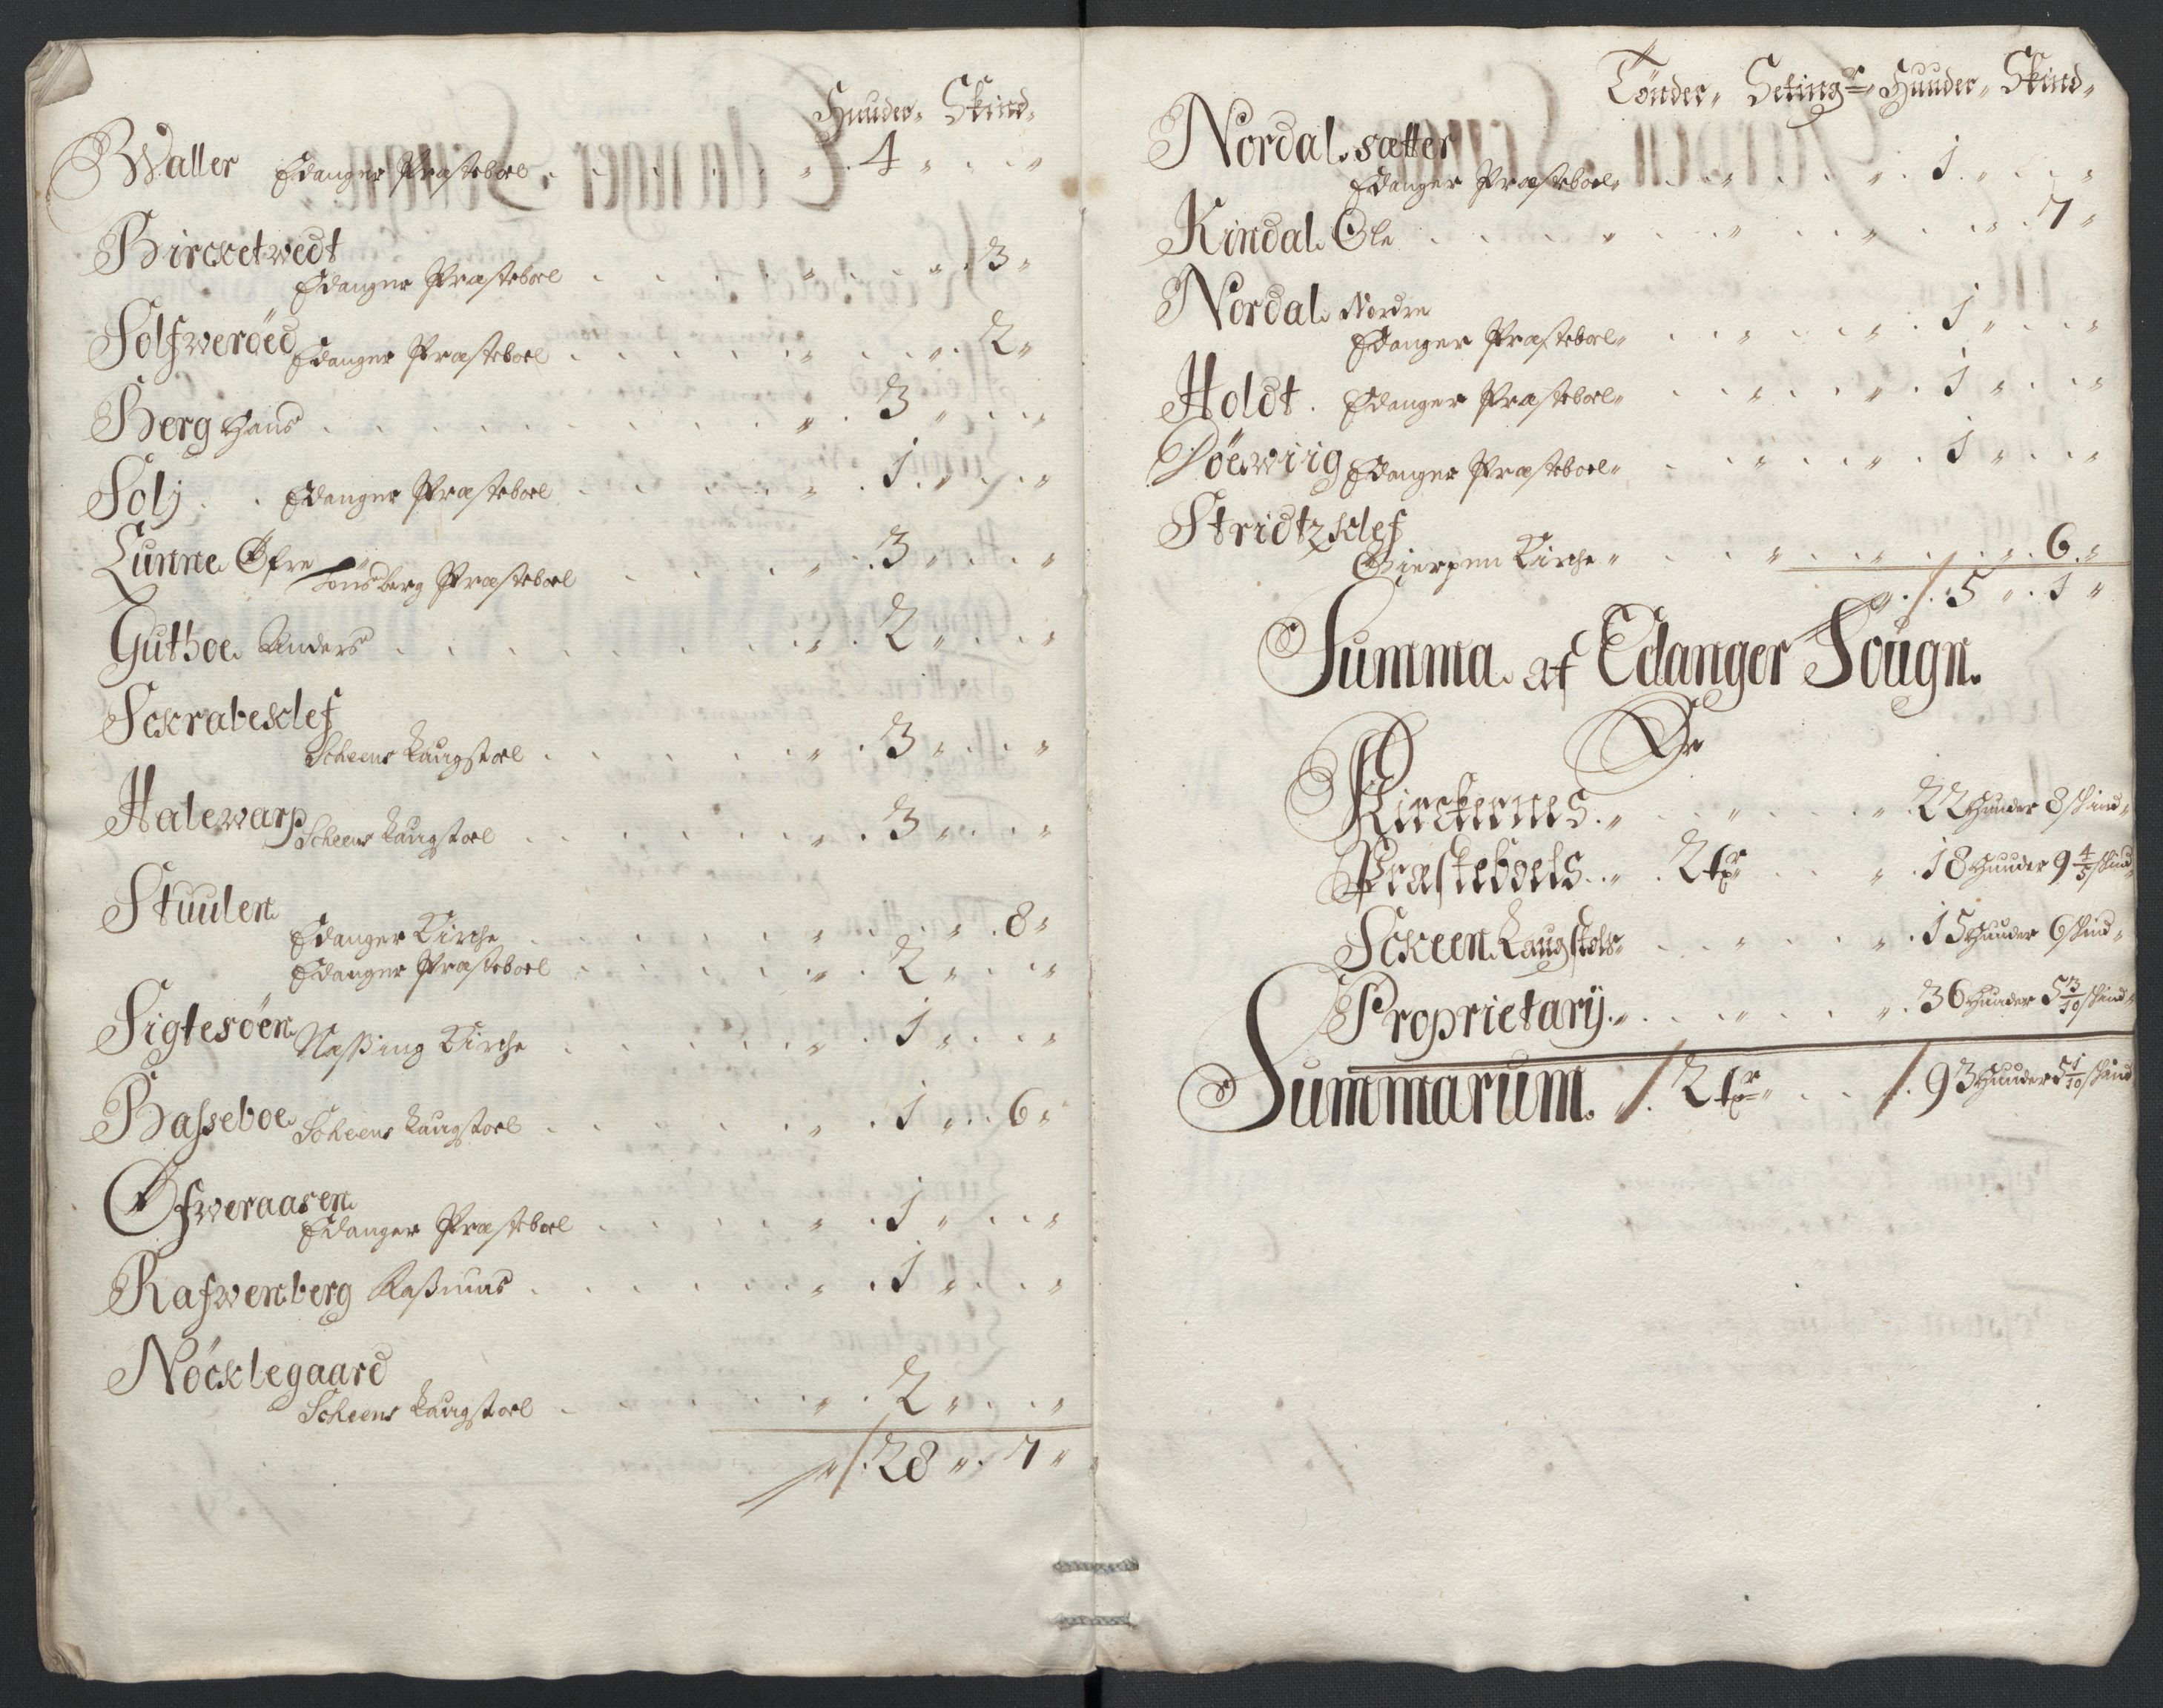 Huuder, Skind,
Waller Edanger Præsteboel . 4 "
Bircketwedt
Edanger Præsteboel . 3 "
Solfweröed Edanger Præsteboel . 2 "
Berg Hans . 3 "
Solj . Edanger Præsteboel . 1 "
Lunne Øfre Tønsberg Præsteboel . 3 "
Guthoe Anders . 2 "
Sckrabesklef
Scheens Laugstoel . 3 "
Halewarp Scheens Laugstoel . 3 "
Stuulen
Edanger Kirche . 8 "
Edanger Præsteboel . 2 "
Sigtesöen Næssing Kirche . 1 "
Basseboe Scheens Laugstoel . 1 " 6 "
Øfweraasen
Edanger Præsteboel . 1 "
Rafwenberg Rasmus . 1 "
Nöcklegaard
Scheens Laugstoel . 2 "
28 " 7 "
Tönder, Setingr, Huuder, Skind,
Nordal sætter
Edanger Præsteboel . 1 "
Kindal Ole . 7 "
Nordal Nordre
Edanger Præsteboel . 1 "
Holdt . Edanger Præsteboel . 1 "
Döewiig Edanger Præsteboel . 1 "
Stridtzklef
Gierpen Kirche . 6 "
5 " 1 "
Summa af Edanger Sougn.
De
Kirckernes . 22 Huuder 8 skind
Præsteboels . 2 tr . 18 Huuder 9 4/5 skind
Sckeen Laugstols . 15 Huuder 6 skind
Proprietarij . 36 Huuder 5 3/10 skind
Summarum . 2 tr . 93 Huuder 5 1/10 skind